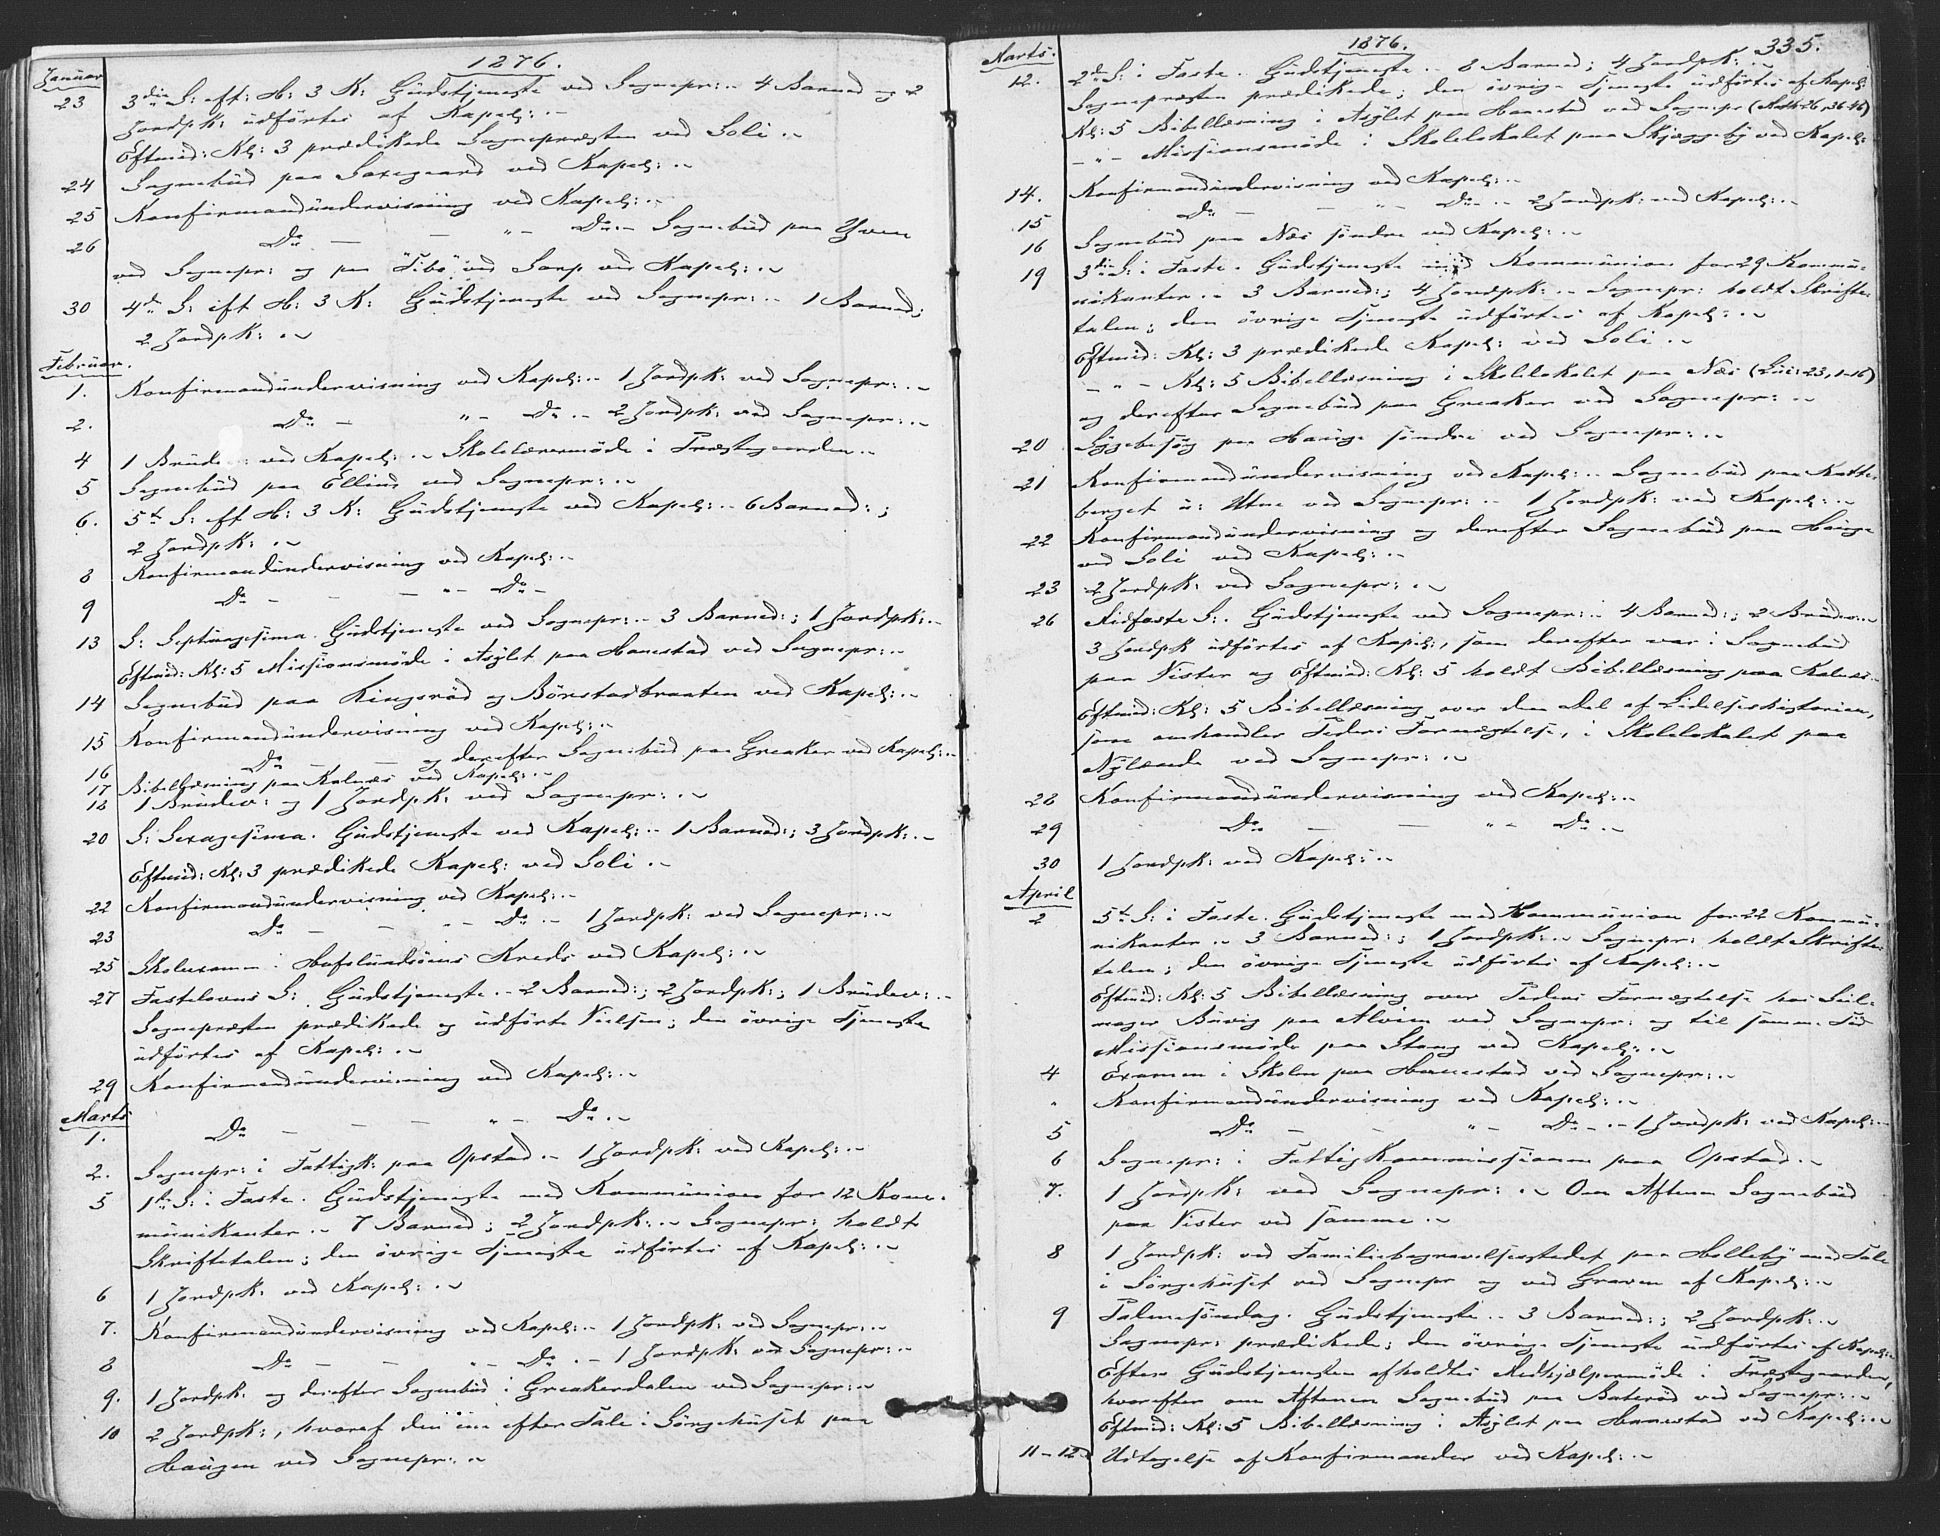 1876.
Januar
23 3die S: eft: H: 3 K: Gudstjeneste ved Sognepr: .- 4 Barned og 2
Jordpk: udförtes af Kapel: .-
Eftmid: Kl: 3 prædikede Sognepræsten ved Soli .-
24 Sognebud paa Saxegaard ved Kapel: .-
25 Konfirmandundervisning ved Kapel: .-
26 Do — — " - Do .- Sognebud paa Hven
ved Sognepr: og paa Tibo ved Sarp ved Kapel: .-
30 4de S: eft H: 3 K: Gudstjeneste ved Sognepr: .- 1 Barned;
2 Jordpk: .-
Februar.
1. Konfirmandundervisning ved Kapel: .- 1 Jordpk: ved Sognepr: .-
2. Do — " - Do .- 2 Jordpk: ved Sognepr: .-
4 1 Brude : ved Kapel: .- Skolelærermöde i Præstegaarden .-
5 Sognebud paa Ellind ved Sognepr: .-
6. 5te S: eft H: 3 K: Gudstjeneste ved Kapel: .- 6 Barned: ;
2 Jordpk: .-
8 Konfirmandundervisning ved Kapel: .-
9 Do - - — " - Do -
13 S: Septuagesima. Gudstjeneste ved Sognepr: .- 3 Barned: ; 1 Jordpk: .-
Eftmid: Kl: 5 Missionsmöde i Asylet paa Hanestad ved Sognepr: .-
14 Sognebud paa Kingsröd og Börstadbraaten ved Kapel: .-
15 Konfirmandundervisning ved Kapel: .-
16 Do — — og derefter Sognebud paa Greaker ved Kapel: .-
17 Bibellæsning paa Kalnæs ved Kapel: .-
18 1 Brudev: og 1 Jordpk: ved Sognepr: .-
20 S: Sexagesima. Gudstjeneste ved Kapel: .- 1 Barned: ; 3 Jordpk: .-
Eftmid: Kl: 3 prædikede Kapel: ved Soli .-
22 Konfirmandundervisning ved Kapel: .-
23 Do — - " - Do .- 1 Jordpk: ved Sognepr: .-
25 Skoleexamen i Hafslundsöens Kreds ved Kapel: .-
27 Fastelavns S: Gudstjeneste .- 2 Barned: ; 2 Jordpk: ; 1 Brudev: .-
Sognepræsten prædikede og udförte Vielsen; den övrige Tjeneste
udförtes af Kapel: .-
29 Konfirmandundervisning ved Kapel: .-
Marts
1. Do — — — " - Do .-
2. Sognepr: i Fattigk: paa Opstad .- 1 Jordpk: ved Kapel: .-
5 1ste S: i Faste. Gudstjeneste med Kommunion for 12 Kom-
munikanter .- 7 Barned; 2 Jordpk: .- Sognepr: holdt
Skriftetalen; den övrige Tjeneste udförtes af Kapel: .-
6 1 Jordpk: ved Kapel: .-
7. Konfirmandundervisning ved Kapel: .- 1 Jordpk: ved Sognepr: .-
8 Do — — " - Do .- 1 Jordpk: ved Sognepr: .-
9. 1 Jordpk: og derefter Sognebud i Greakerdalen ved Sognepr: .-
10 2 Jordpk: , hvoraf den ene efter Tale i Sörgehuset paa
Haugen ved Sognepr: .-
1876. 335.
Marts.
12. 2den S: i Faste. Gudstjeneste .- 8 Barned; 4 Jordpk: .-
Sognepræsten prædikede; den övrige Tjeneste udförtes af Kapel:
Kl: 5 Bibellæsning i Asylet paa Hanestad ved Sognepr (Matth: 26, 36-46)
- " - Missionsmöde i Skolelokalet paa Skjeggeby ved Kapel:
14. Konfirmandundervisning ved Kapel: .-
15 Do — — " - Do .- 2 Jordpk: ved Kapel: .-
16 Sognebud paa Næs söndre ved Kapel: .-
19 3die S: i Faste. Gudstjeneste med Kommunion for 29 Kommu-
nikanter .- 3 Barned: ; 4 Jordpk: .- Sognepr: holdt Skrifte-
talen; den övrige Tjeneste udförtes af Kapel: .-
Eftmid: Kl: 3 prædikede Kapel: ved Soli .-
- " - Kl: 5 Bibellæsning i Skolelokalet paa Næs (Luc: 23, 1-16)
og derefter Sognebud paa Greaker ved Sognepr: .-
20 Sygebesög paa Hauge söndre ved Sognepr: .-
21 Konfirmandundervisning ved Kapel: .- Sognebud paa Katte-
berget u: Utne ved Sognepr: .- 1 Jordpk: ved Kapel: .-
22 Konfirmandundervisning og derefter Sognebud paa Hauge
ved Soli ved Kapel: .-
23 2 Jordpk: ved Sognepr: .-
26 Midfaste S: . Gudstjeneste ved Sognepr: .- 4 Barned: ; 2 Brudev: .-
3 Jordpk udförtes af Kapel: , som derefter var i Sognebud
paa Vister og Eftmid: Kl: 5 holdt Bibellæsning paa Kalnæs .-
Eftmid: Kl: 5 Bibellæsning over den Del af Lidelseshistorien,
som omhandler Peders Fornægtelse, i Skolelokalet paa
Nylænde ved Sognepr: .-
28 Konfirmandundervisning ved Kapel: .-
29 Do — — " - Do .-
30 1 Jordpk: ved Kapel: .-
April
2 5te S: i Faste. Gudstjeneste med Kommunion for 22 Kommu-
nikanter .- 3 Barned: ; 1 Jordpk: .- Sognepr: holdt Skrifte-
talen; den övrige Tjeneste udförtes af Kapel: .-
Eftmid: Kl: 5 Bibellæsning over Peders Fornægtelse hos Seil-
mager Buvig paa Alvim ved Sognepr: og til samme Tid
Missionsmöde paa Stang ved Kapel: .-
4 Examen i Skolen paa Hanestad ved Sognepr: .-
" Konfirmandundervisning ved Kapel: .-
5 Do — - " - Do .- 1 Jordpk: ved Kapel: .-
6 Sognepr: i Fattigkommissionen paa Opstad .-
7. 1 Jordpk: ved Sognepr: .- Om Aftenen Sognebud
paa Vister ved samme .-
8 1 Jordpk: ved Familiebegravelsesstedet paa Holleby med Tale
i Sörgehuset ved Sognepr og ved Graven af Kapel: .-
9 Palmesöndag. Gudstjeneste .- 3 Barned: ; 2 Jordpk: .-
Sognepr: prædikede; den övrige Tjeneste udförtes af Kapel: .-
Efter Gudstjenesten afholdtes Medhjælpermöde i Præstegaarden,
hvorefter om Aftenen Sognebud paa Bateröd ved Sognepr: .-
Eftmid: Kl: 5 Bibellæsning i Asylet paa Hanestad ved Kapel: .-
11-12 Udtagelse af Konfirmander ved Kapel: .-